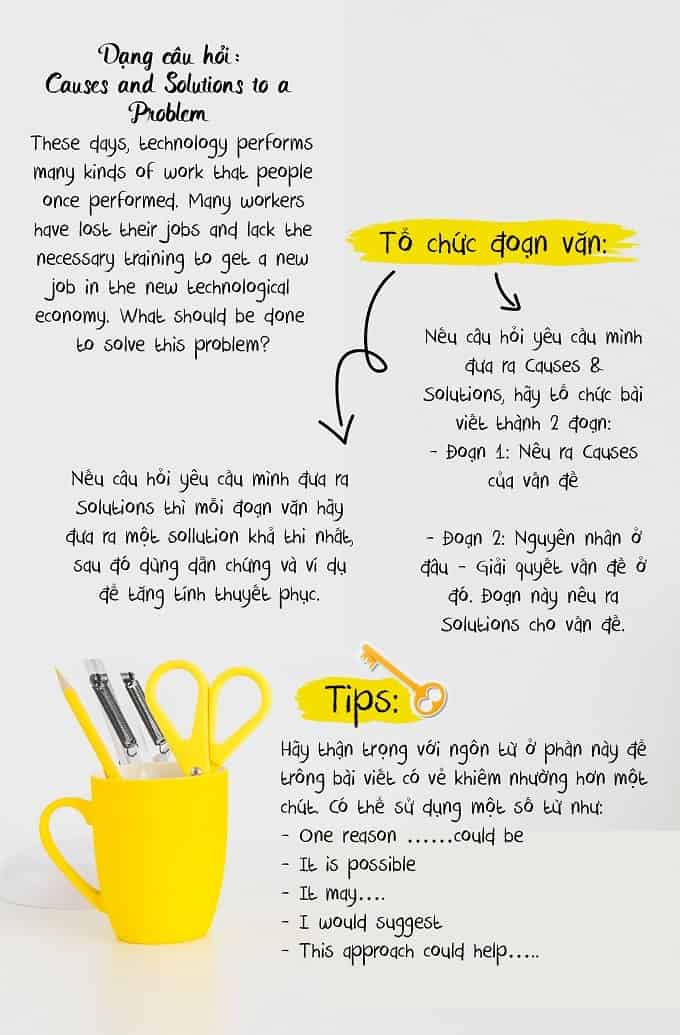 Dạng câu hỏi:
Causes and Solutions to a
Problem
These days, technology performs
many kinds of work that people
once performed. Many workers
have lost their jobs and lack the
necessary training to get a new
job in the new technological
economy. What should be done
to solve this problem?
Tổ chức đoạn văn:
Nếu câu hỏi yêu cầu mình đưa ra
Solutions thì mỗi đoạn văn hãy
đưa ra một sollution khả thi nhất,
sau đó dùng dẫn chứng và ví dụ
để tăng tính thuyết phục.
Nếu câu hỏi yêu cầu mình
đưa ra Causes &
Solutions, hãy tổ chức bài
viết thành 2 đoạn:
- Đoạn 1: Nêu ra Causes
của vấn đề
- Đoạn 2: Nguyên nhân ở
đâu - Giải quyết vấn đề ở
đó. Đoạn này nêu ra
Solutions cho vấn đề.
Tips:
Hãy thận trọng với ngôn từ ở phần này để
trông bài viết có vẻ khiêm nhường hơn một
chút. Có thể sử dụng một số từ như:
- One reason ......could be
- It is possible
- It may....
- I would suggest
- This approach could help.....